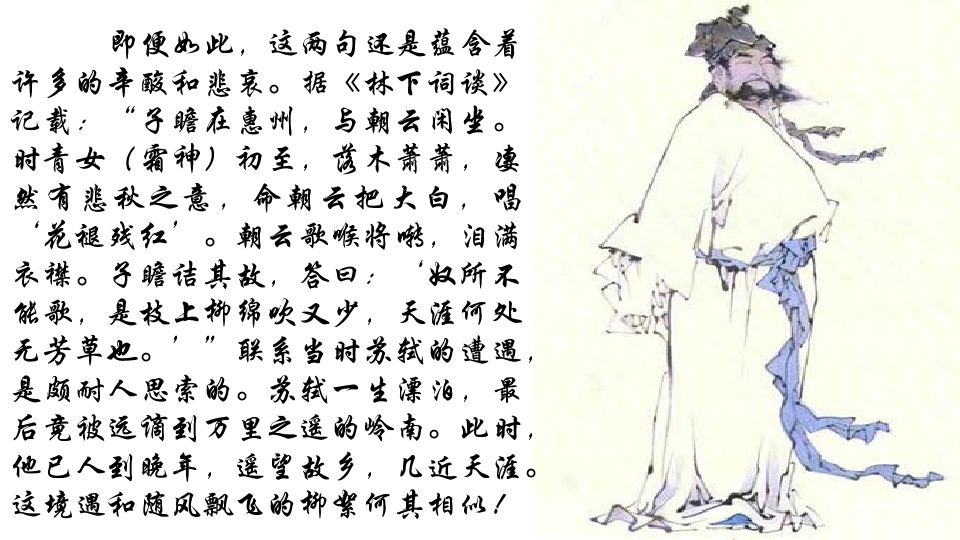 即便如此，这两句还是蕴含着
许多的辛酸和悲哀。据《林下词谈》
记载：“子瞻在惠州，与朝云闲坐。
时青女（霜神）初至，落木萧萧，凄
然有悲秋之意，命朝云把大白，唱
‘花褪残红’。朝云歌喉将啭，泪满
衣襟。子瞻诘其故，答曰：‘奴所不
能歌，是枝上柳绵吹又少，天涯何处
无芳草也。’”联系当时苏轼的遭遇，
是颇耐人思索的。苏轼一生漂泊，最
后竟被远谪到万里之遥的岭南。此时，
他已人到晚年，遥望故乡，几近天涯。
这境遇和随风飘飞的柳絮何其相似！